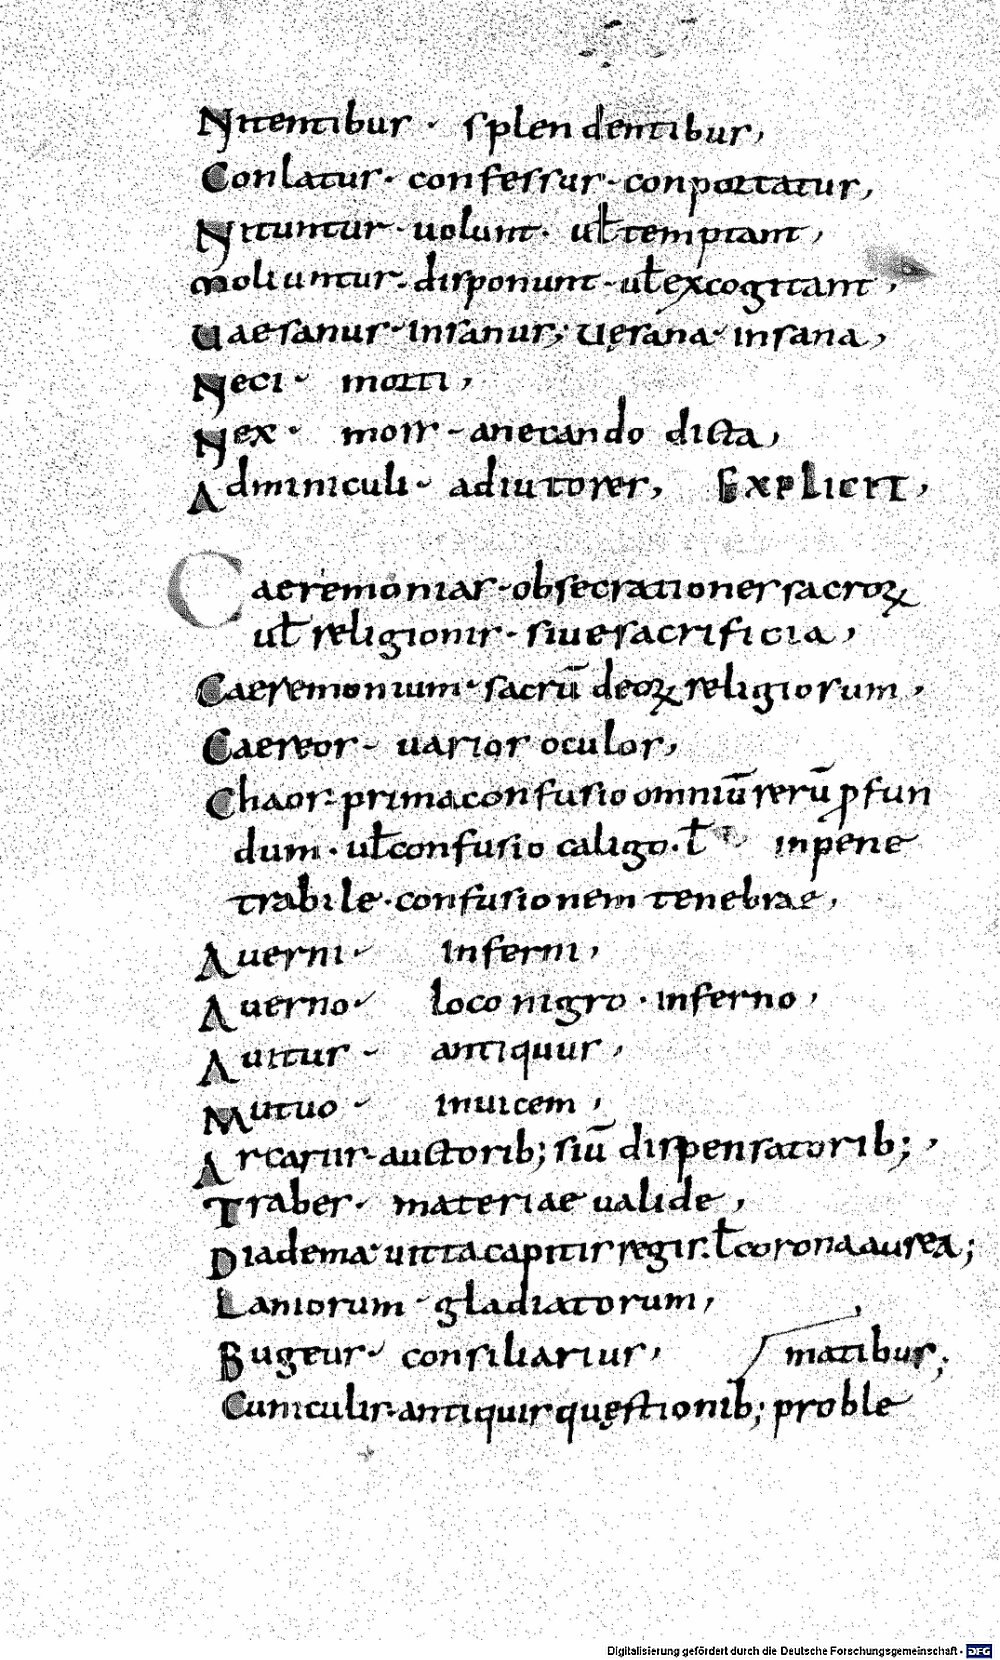 Nitentibus · splendentibus,
Conlatus · confessus · conportatus,
Nituntur · uolunt · ul̄ temptant,
Moliuntur · disponunt · ul̄ excogitant,
Uaesanus · insanus; Uęsana · insana,
Neci · morti,
Nex · mors · anecando dicta,
Adminiculi · adiutores, Explicit,
Caeremonias · obsecrationes sacroꝝ
ul̄ religionis · siue sacrificia,
Caeremonium · sacrū deoꝝ religiosum,
Caereos · uarios oculos,
Chaos · prima confusio omniū rerū ꝓfun
dum · ul̄ confusio caligo · l̄ inpene
trabile · confusionem tenebrae,
Auerni · inferni,
Auerno · loco nigro · inferno,
Auitus · antiquus,
Mutuo · inuicem,
Arcariis · auctorib; siū dispensatorib;,
Trabes · materiae ualide,
Diadema · uitta capitis regis · l̄ corona aurea;
Laniorum · gladiatorum,
Bugeus · consiliarius,
matibus;
Cuniculis · antiquis quęstionib; proble
Digitalisierung gefördert durch die Deutsche Forschungsgemeinschaft - DFG